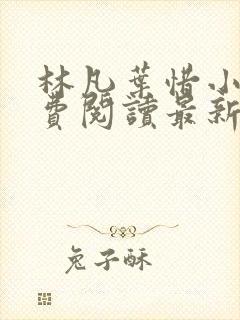 林凡葉惜小
費閱讀最新
兔子酥